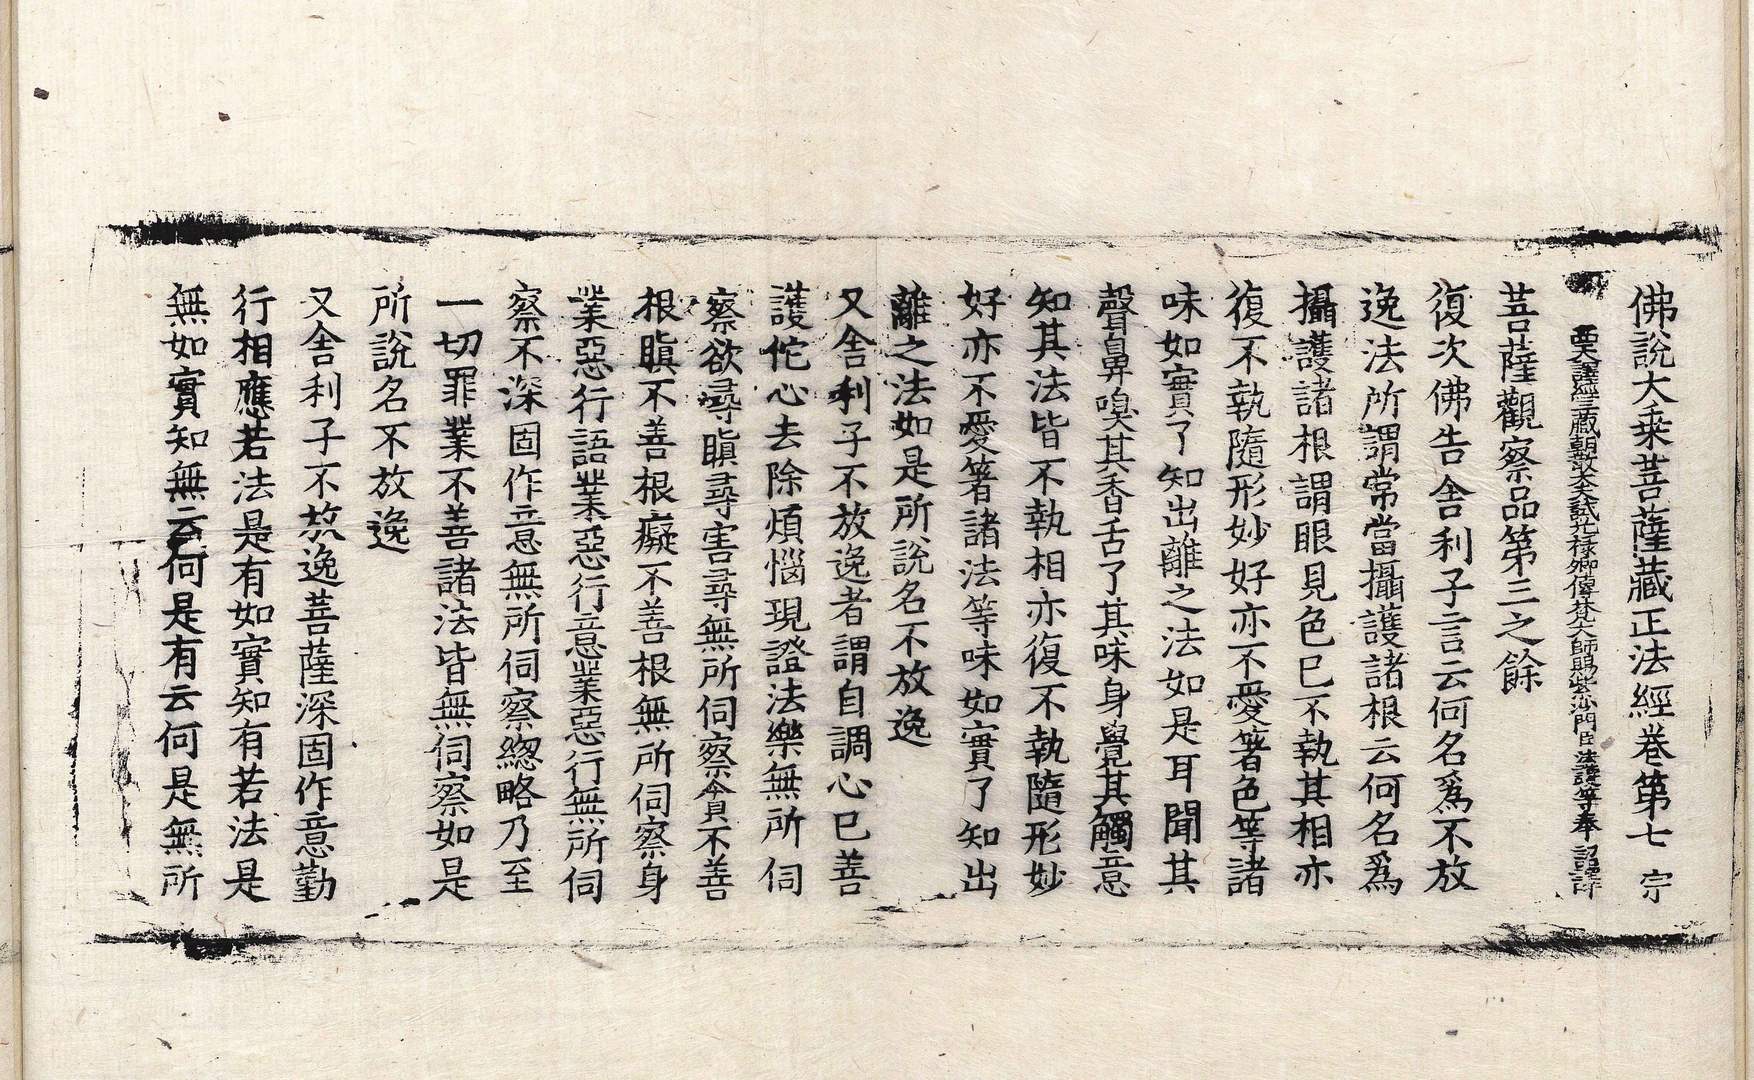 佛說大乗菩薩藏正法經卷第七 宗
西天譯經三藏朝散大夫試光祿卿傳梵大師賜紫沙門臣法護等奉 詔譯
菩薩觀察品第三之餘
復次佛告舍利子言云何名爲不放
逸法所謂常當攝護諸根云何名爲
攝護諸根謂眼見色已不執其相亦
復不執隨形妙好亦不愛著色等諸
味如實了知出離之法如是耳聞其
聲鼻嗅其香舌了其味身覺其觸意
知其法皆不執相亦復不執隨形妙
好亦不愛著諸法等味如實了知出
離之法如是所說名不放逸
又舍利子不放逸者謂自調心已善
護佗心去除煩惱現證法樂無所伺
察欲尋瞋尋害尋無所伺察貪不善
根瞋不善根癡不善根無所伺察身
業惡行語業惡行意業惡行無所伺
察不深固作意無所伺察緫略乃至
一切罪業不善諸法皆無伺察如是
所說名不放逸
又舍利子不放逸菩薩深固作意勤
行相應若法是有如實知有若法是
無如實知無云何是有云何是無所